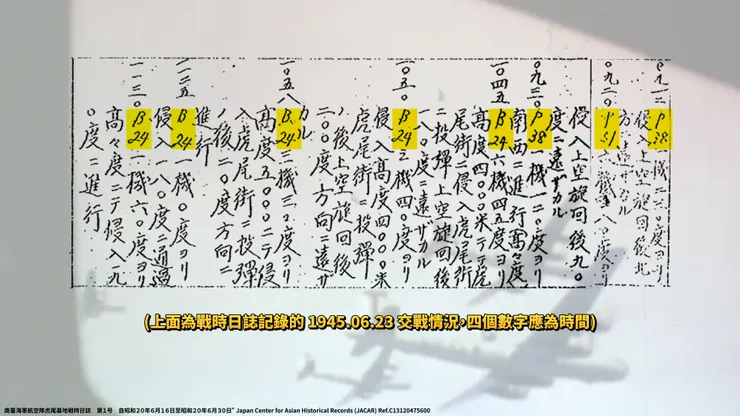 P38
侵入上空旋回後九
〇九二〇 P51 六機 八〇度ヨリ
侵入上空旋回後九〇
度ニ遠ザカル
〇九三〇 P38 一機一二〇度ヨリ
南西ニ進行高々度
一〇四五 B24 六機四五度ヨリ
高度四〇〇〇米ニテ虎
尾街ニ侵入虎尾街
ニ投弾上空旋回後
一八〇度ニ遠ザカル
一〇五〇 B24 三機四〇度ヨリ
侵入高度四〇〇〇米
虎尾街ニ投弾
後上空旋回後
二〇〇度方向ニ遠ザ
カル
一〇五八 B24 三機三〇度ヨリ
高度五〇〇〇ニテ侵
入虎尾街ニ投弾
後二〇度方向ニ
進行
一一二五 B24 一機〇度ヨリ
侵入一八〇度ニ通過
一一三〇 B24 一機六〇度ヨリ
高々度ニテ侵入一九
〇度ニ進行
(上面為戰時日誌記錄的 1945.06.23 交戰情況,四個數字應為時間)
南臺海軍航空隊虎尾基地戦時日誌 第1号 自昭和20年6月16日至昭和20年6月30日" Japan Center for Asian Historical Records (JACAR) Ref.C13120475600